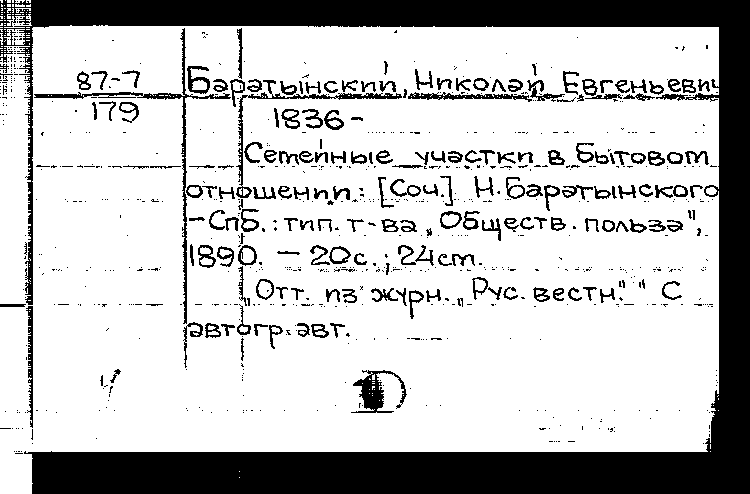 87-7
179
Баратынский, Николай Евгеньевич
1836-
Семейные участки в бытовом
отношении: [Соч.] Н. Баратынского
-Спб.: тип. т-ва „Обществ. польза",
1890. - 20с.; 24cm.
„Отт. из журн. „Рус. вестн." " С
автогр. авт.